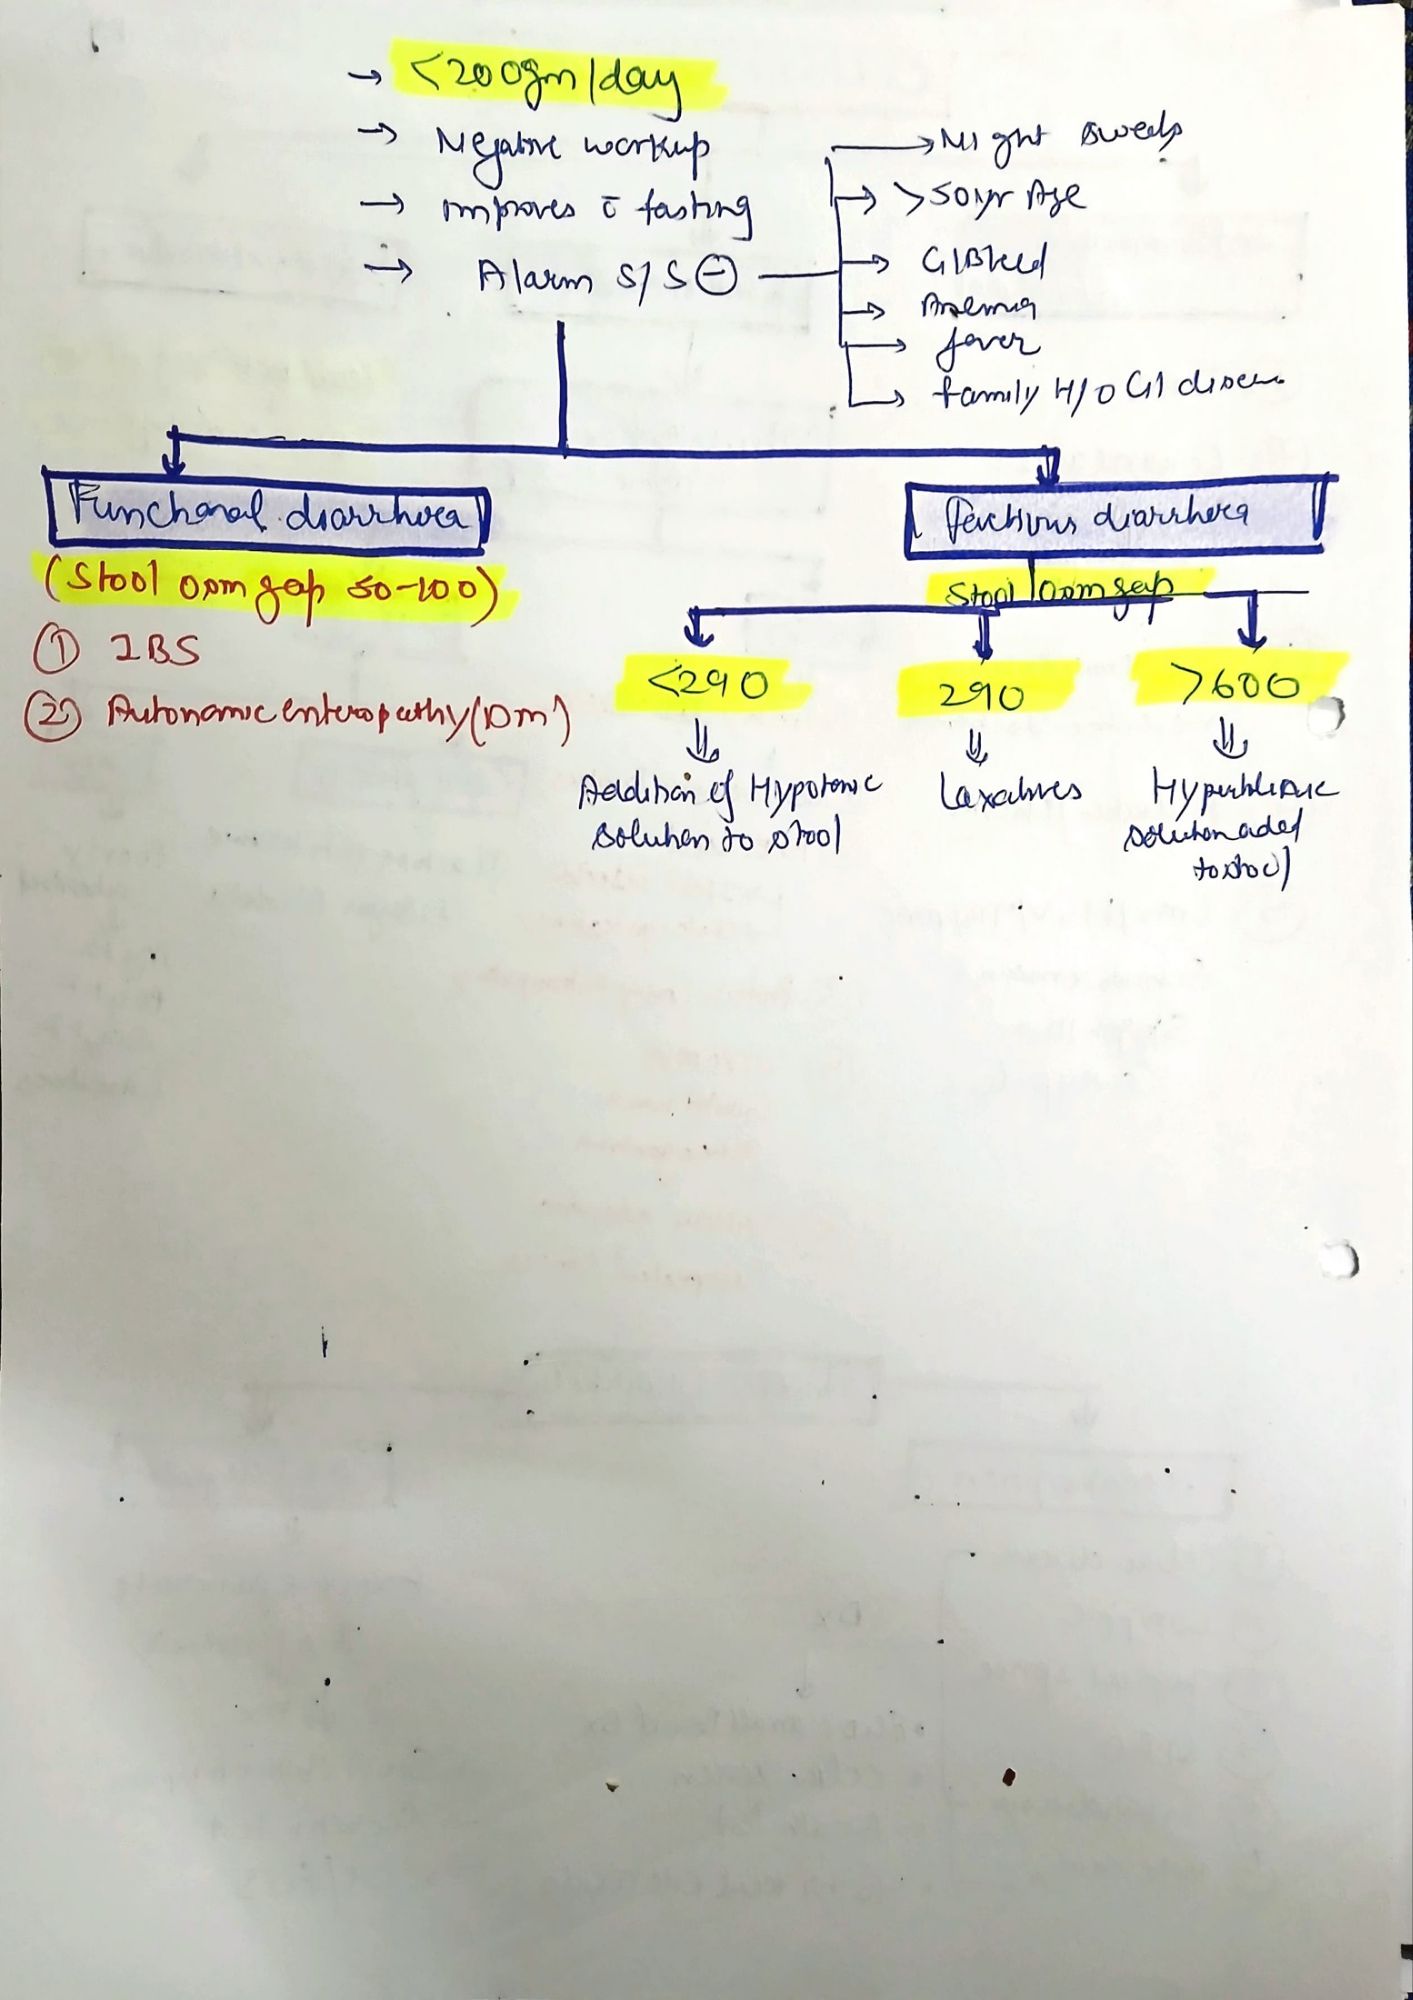 → <200gm/day
→ Negative workup
→ improves c̄ fasting
→ Alarm S/S ⊖
→ Night sweats
→ >50yr Age
→ GI Bleed
→ Anemia
→ fever
→ family H/O GI disease
Functional diarrhoea
(Stool osm gap 50-100)
① IBS
② Autonomic enteropathy (DM)
Factitious diarrhoea
Stool osm gap
<290
290
>600
Addition of Hypotonic
solution to stool
Laxatives
solution added
to stool